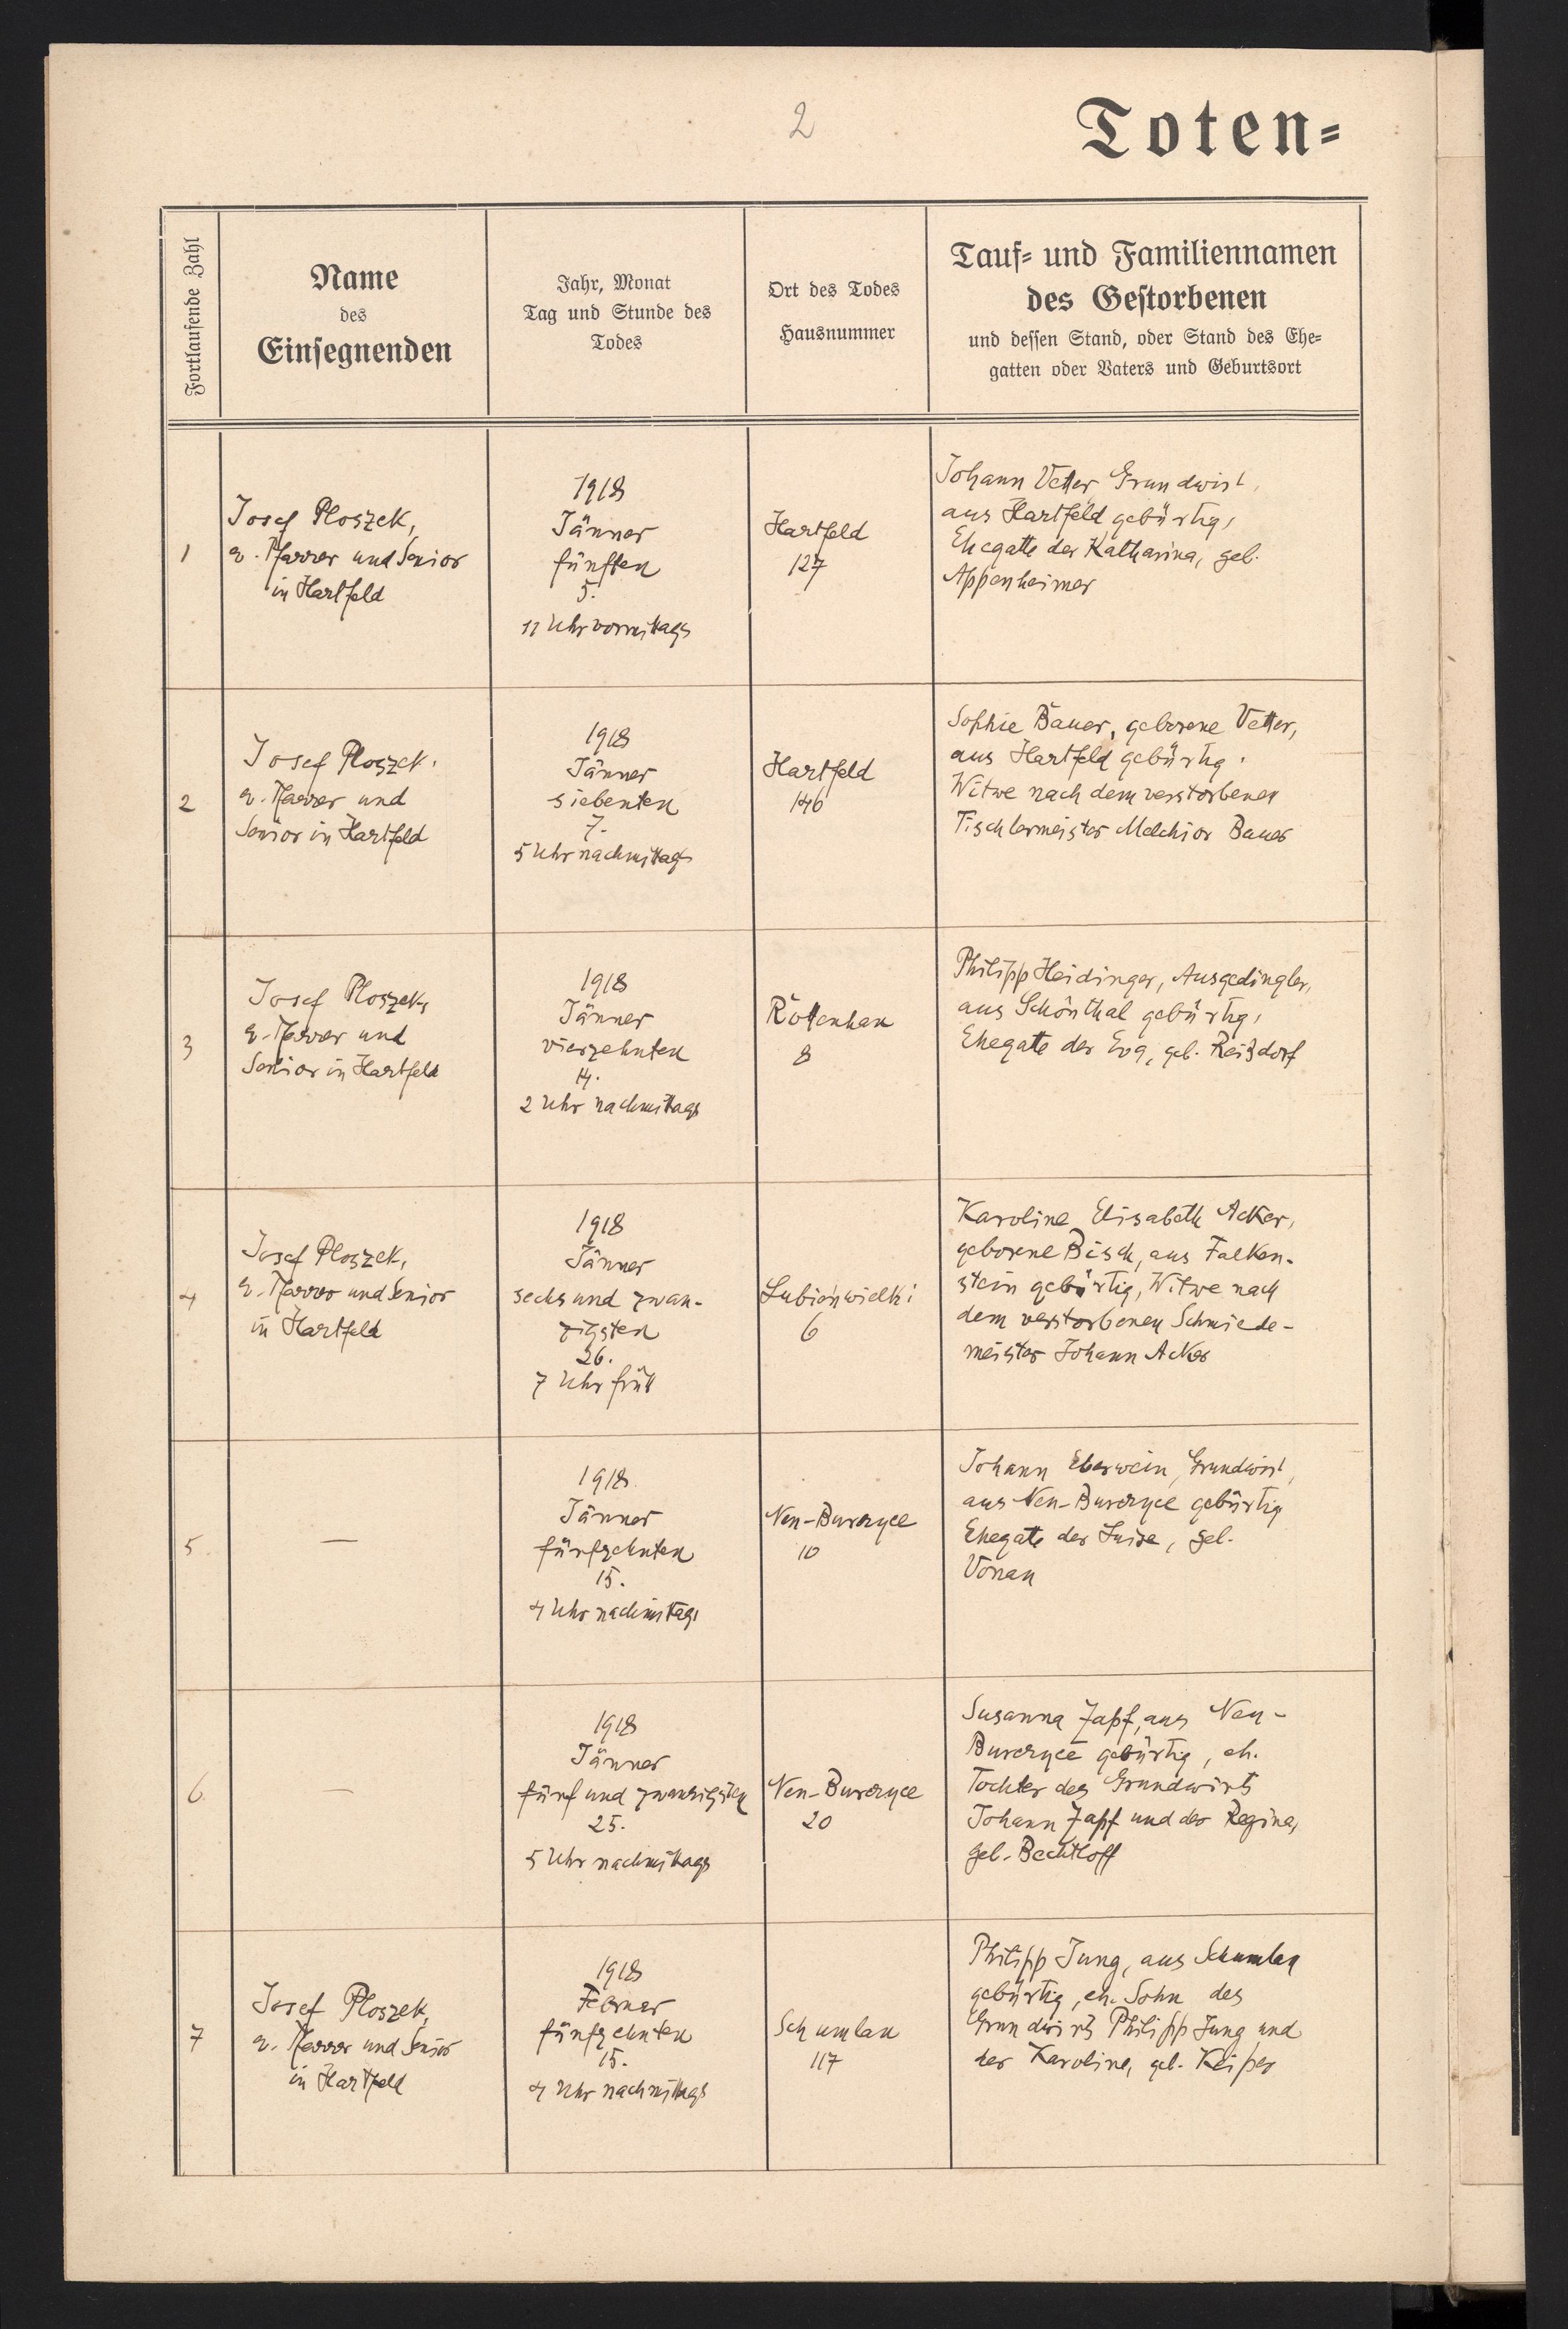 2
Toten-
Fortlaufende Zahl
Name
des
Einsegnenden
Jahr, Monat
Tag und Stunde des
Todes
Ort des Todes
Hausnummer
Tauf- und Familiennamen
des Gestorbenen
und dessen Stand, oder Stand des Ehe-
gatten oder Vaters und Geburtsort
1
Josef Ploszek,
ev. Pfarrer und Senior
in Hartfeld
1918
Jänner
fünften
5.
11 Uhr vormittags
Hartfeld
127
Johann Vetter Grundwirt,
aus Hartfeld gebürtig,
Ehegatte der Katharina, geb.
Appenheimer
2
Josef Ploszek,
ev. Pfarrer und
Senior in Hartfeld
1918
Jänner
siebenten
7.
5 Uhr nachmittags
Hartfeld
146
Sophie Bauer, geborene Vetter,
aus Hartfeld gebürtig,
Witwe nach dem verstorbenen
Tischlermeister Melchior Bauer
3
Josef Ploszek,
ev. Pfarrer und
Senior in Hartfeld
1918
Jänner
vierzehnten
14.
2 Uhr nachmittags
Rottenhan
8
Philipp Heidinger, Ausgedingler,
aus Schönthal gebürtig,
Ehegatte der Eva, geb. Reißdorf
4
Josef Ploszek,
ev. Pfarrer und Senior
in Hartfeld
1918
Jänner
sechs und zwan-
zigsten
26.
7 Uhr früh
Lubień wielki
6
Karoline Elisabeth Acker,
geborene Bisch, aus Falken-
stein gebürtig, Witwe nach
dem verstorbenen Schmiede-
meister Johann Acker
5
—
1918
Jänner
fünfzehnten
15.
4 Uhr nachmittags
Neu-Burczyce
10
Johann Eberwein, Grundwirt,
aus Neu-Burczyce gebürtig
Ehegatte der Luise, geb.
Vonau
6
—
1918
Jänner
fünf und zwanzigsten
25.
5 Uhr nachmittags
Neu-Burczyce
20
Susanna Zapf, aus Neu-
Burczyce gebürtig, eh.
Tochter des Grundwirts
Johann Zapf und der Regina,
geb. Bechtloff
7
Josef Ploszek,
ev. Pfarrer und Senior
in Hartfeld
1918
Feber
fünfzehnten
15.
4 Uhr nachmittags
Schumlau
117
Philipp Jung, aus Schumlau
gebürtig, eh. Sohn des
Grundwirts Philipp Jung und
der Karoline, geb. Keiper